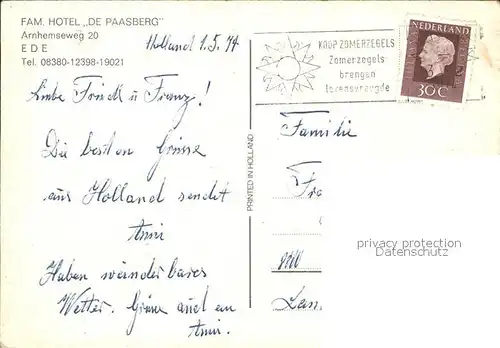 FAM. HOTEL „DE PAASBERG"
Arnhemseweg 20
EDE
Tel. 08380-12398-19021
Holland 1.5.74
KOOP ZOMERZEGELS
Zomerzegels
brengen
levensvreugde
NEDERLAND
30 C
Liebe u Franz!
Die besten Grüsse
aus Holland sendet
Anni
Haben wunderbares
Wetter. Grüsse auch an
Anni.
PRINTED IN HOLLAND
Familie
Fra
privacy protection
Datenschutz